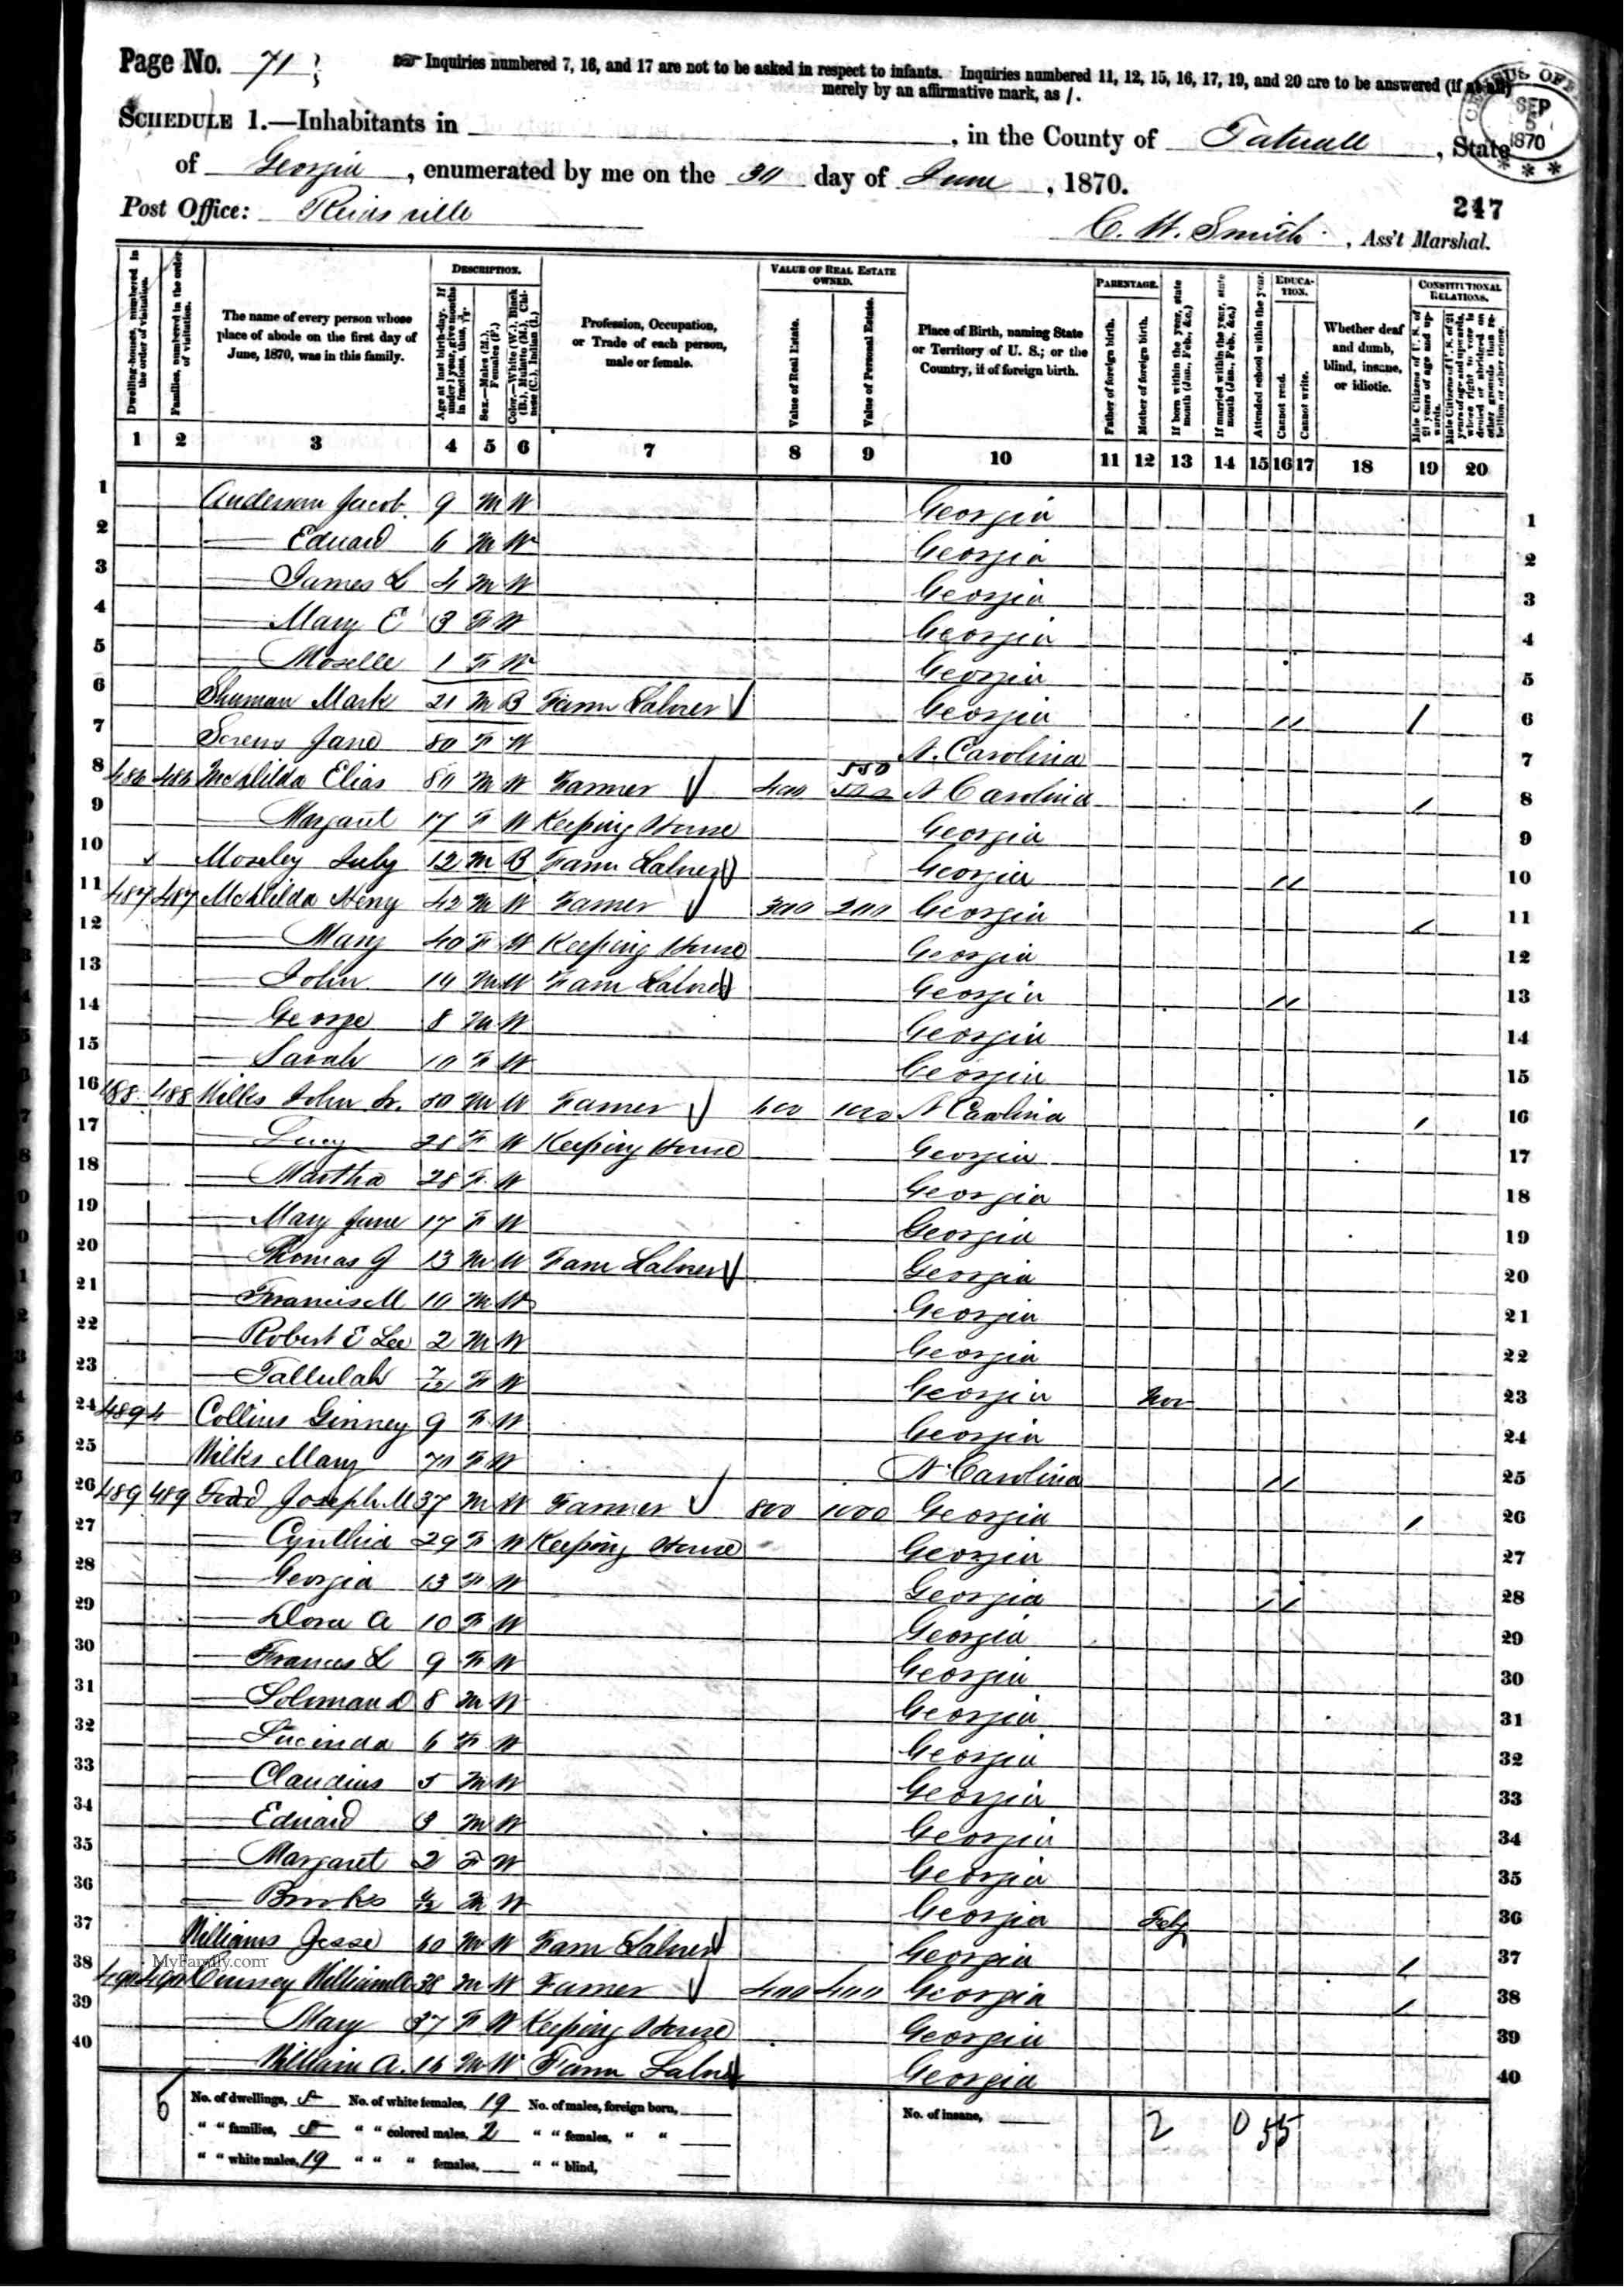 Page No. 71
Inquiries numbered 7, 16, and 17 are not to be asked in respect to infants. Inquiries numbered 11, 12, 15, 16, 17, 19, and 20 are to be answered (if at all)
merely by an affirmative mark, as /.
CENSUS OFF
SEP
5
1870
SCHEDULE 1.—Inhabitants in , in the County of Tatnall , State
of Georgia , enumerated by me on the 30 day of June , 1870.
247
Post Office: Reidsville
C. W. Smith , Ass't Marshal.
Dwelling-houses, numbered in the order of visitation.
Families, numbered in the order of visitation.
The name of every person whose place of abode on the first day of June, 1870, was in this family.
DESCRIPTION.
Age at last birth-day. If under 1 year, give months in fractions, thus, 3/12.
Sex.—Males (M.), Females (F.)
Color.—White (W.), Black (B.), Mulatto (M.), Chinese (C.), Indian (I.)
Profession, Occupation, or Trade of each person, male or female.
VALUE OF REAL ESTATE OWNED.
Value of Real Estate.
Value of Personal Estate.
Place of Birth, naming State or Territory of U. S.; or the Country, if of foreign birth.
PARENTAGE.
Father of foreign birth.
Mother of foreign birth.
If born within the year, state month (Jan., Feb., &c.)
If married within the year, state month (Jan., Feb., &c.)
Attended school within the year.
EDUCATION.
Cannot read.
Cannot write.
Whether deaf and dumb, blind, insane, or idiotic.
CONSTITUTIONAL RELATIONS.
Male Citizens of U. S. of 21 years of age and upwards.
Male Citizens of U. S. of 21 years of age and upwards, whose right to vote is denied or abridged on other grounds than rebellion or other crime.
1 2 3 4 5 6 7 8 9 10 11 12 13 14 15 16 17 18 19 20
1 Anderson Jacob 9 M W Georgia 1
2 — Edward 6 M W Georgia 2
3 — James L 4 M W Georgia 3
4 — Mary E 3 F W Georgia 4
5 — Moselle 1 F W Georgia 5
6 Shuman Mark 21 M B Farm Laborer Georgia / / / 6
7 Jane 80 F W N. Carolina 7
8 486 486 Elias 80 M W Farmer 400 550 N Carolina / 8
9 — Margaret 17 F W Keeping House Georgia 9
10 Moseley July 12 M B Farm Laborer Georgia / / 10
11 487 487 Henry 42 M W Farmer 300 200 Georgia / 11
12 — Mary 40 F W Keeping House Georgia 12
13 — John 14 M W Farm Laborer Georgia / / 13
14 — George 8 M W Georgia 14
15 — Sarah 10 F W Georgia 15
16 488 488 Wilks John Sr. 80 M W Farmer 600 1000 N Carolina / 16
17 — Lucy 28 F W Keeping House Georgia 17
18 — Martha 28 F W Georgia 18
19 — Mary Jane 17 F W Georgia 19
20 — Thomas J 13 M W Farm Laborer Georgia 20
21 — Francis M 10 M W Georgia 21
22 — Robert E Lee 2 M W Georgia 22
23 — Tallulah 7/12 F W Georgia Nov 23
24 489 4 Collins Ginney 9 F W Georgia 24
25 Wilks Mary 70 F W N. Carolina / / 25
26 489 489 Joseph M 37 M W Farmer 800 1000 Georgia / 26
27 — Cynthia 29 F W Keeping House Georgia 27
28 — Georgia 13 F W Georgia / / 28
29 — Dora A 10 F W Georgia 29
30 — Frances L 9 F W Georgia 30
31 — Soloman D 8 M W Georgia 31
32 — Lucinda 6 F W Georgia 32
33 — Claudius 5 M W Georgia 33
34 — Edward 3 M W Georgia 34
35 — Margaret 2 F W Georgia 35
36 — Brooks M W Georgia Feb 36
37 Williams Jesse 60 M W Farm Laborer Georgia / 37
MyFamily.com
38 490 490 William 38 M W Farmer 400 400 Georgia / 38
39 — Mary 37 F W Keeping House Georgia 39
40 — William A. 16 M W Farm Laborer Georgia 40
6 No. of dwellings, 5 No. of white females, 19 No. of males, foreign born, No. of insane, 2 0 5 5
" " families, 5 " " colored males, 2 " " females, " "
" " white males, 19 " " " females, " " blind,